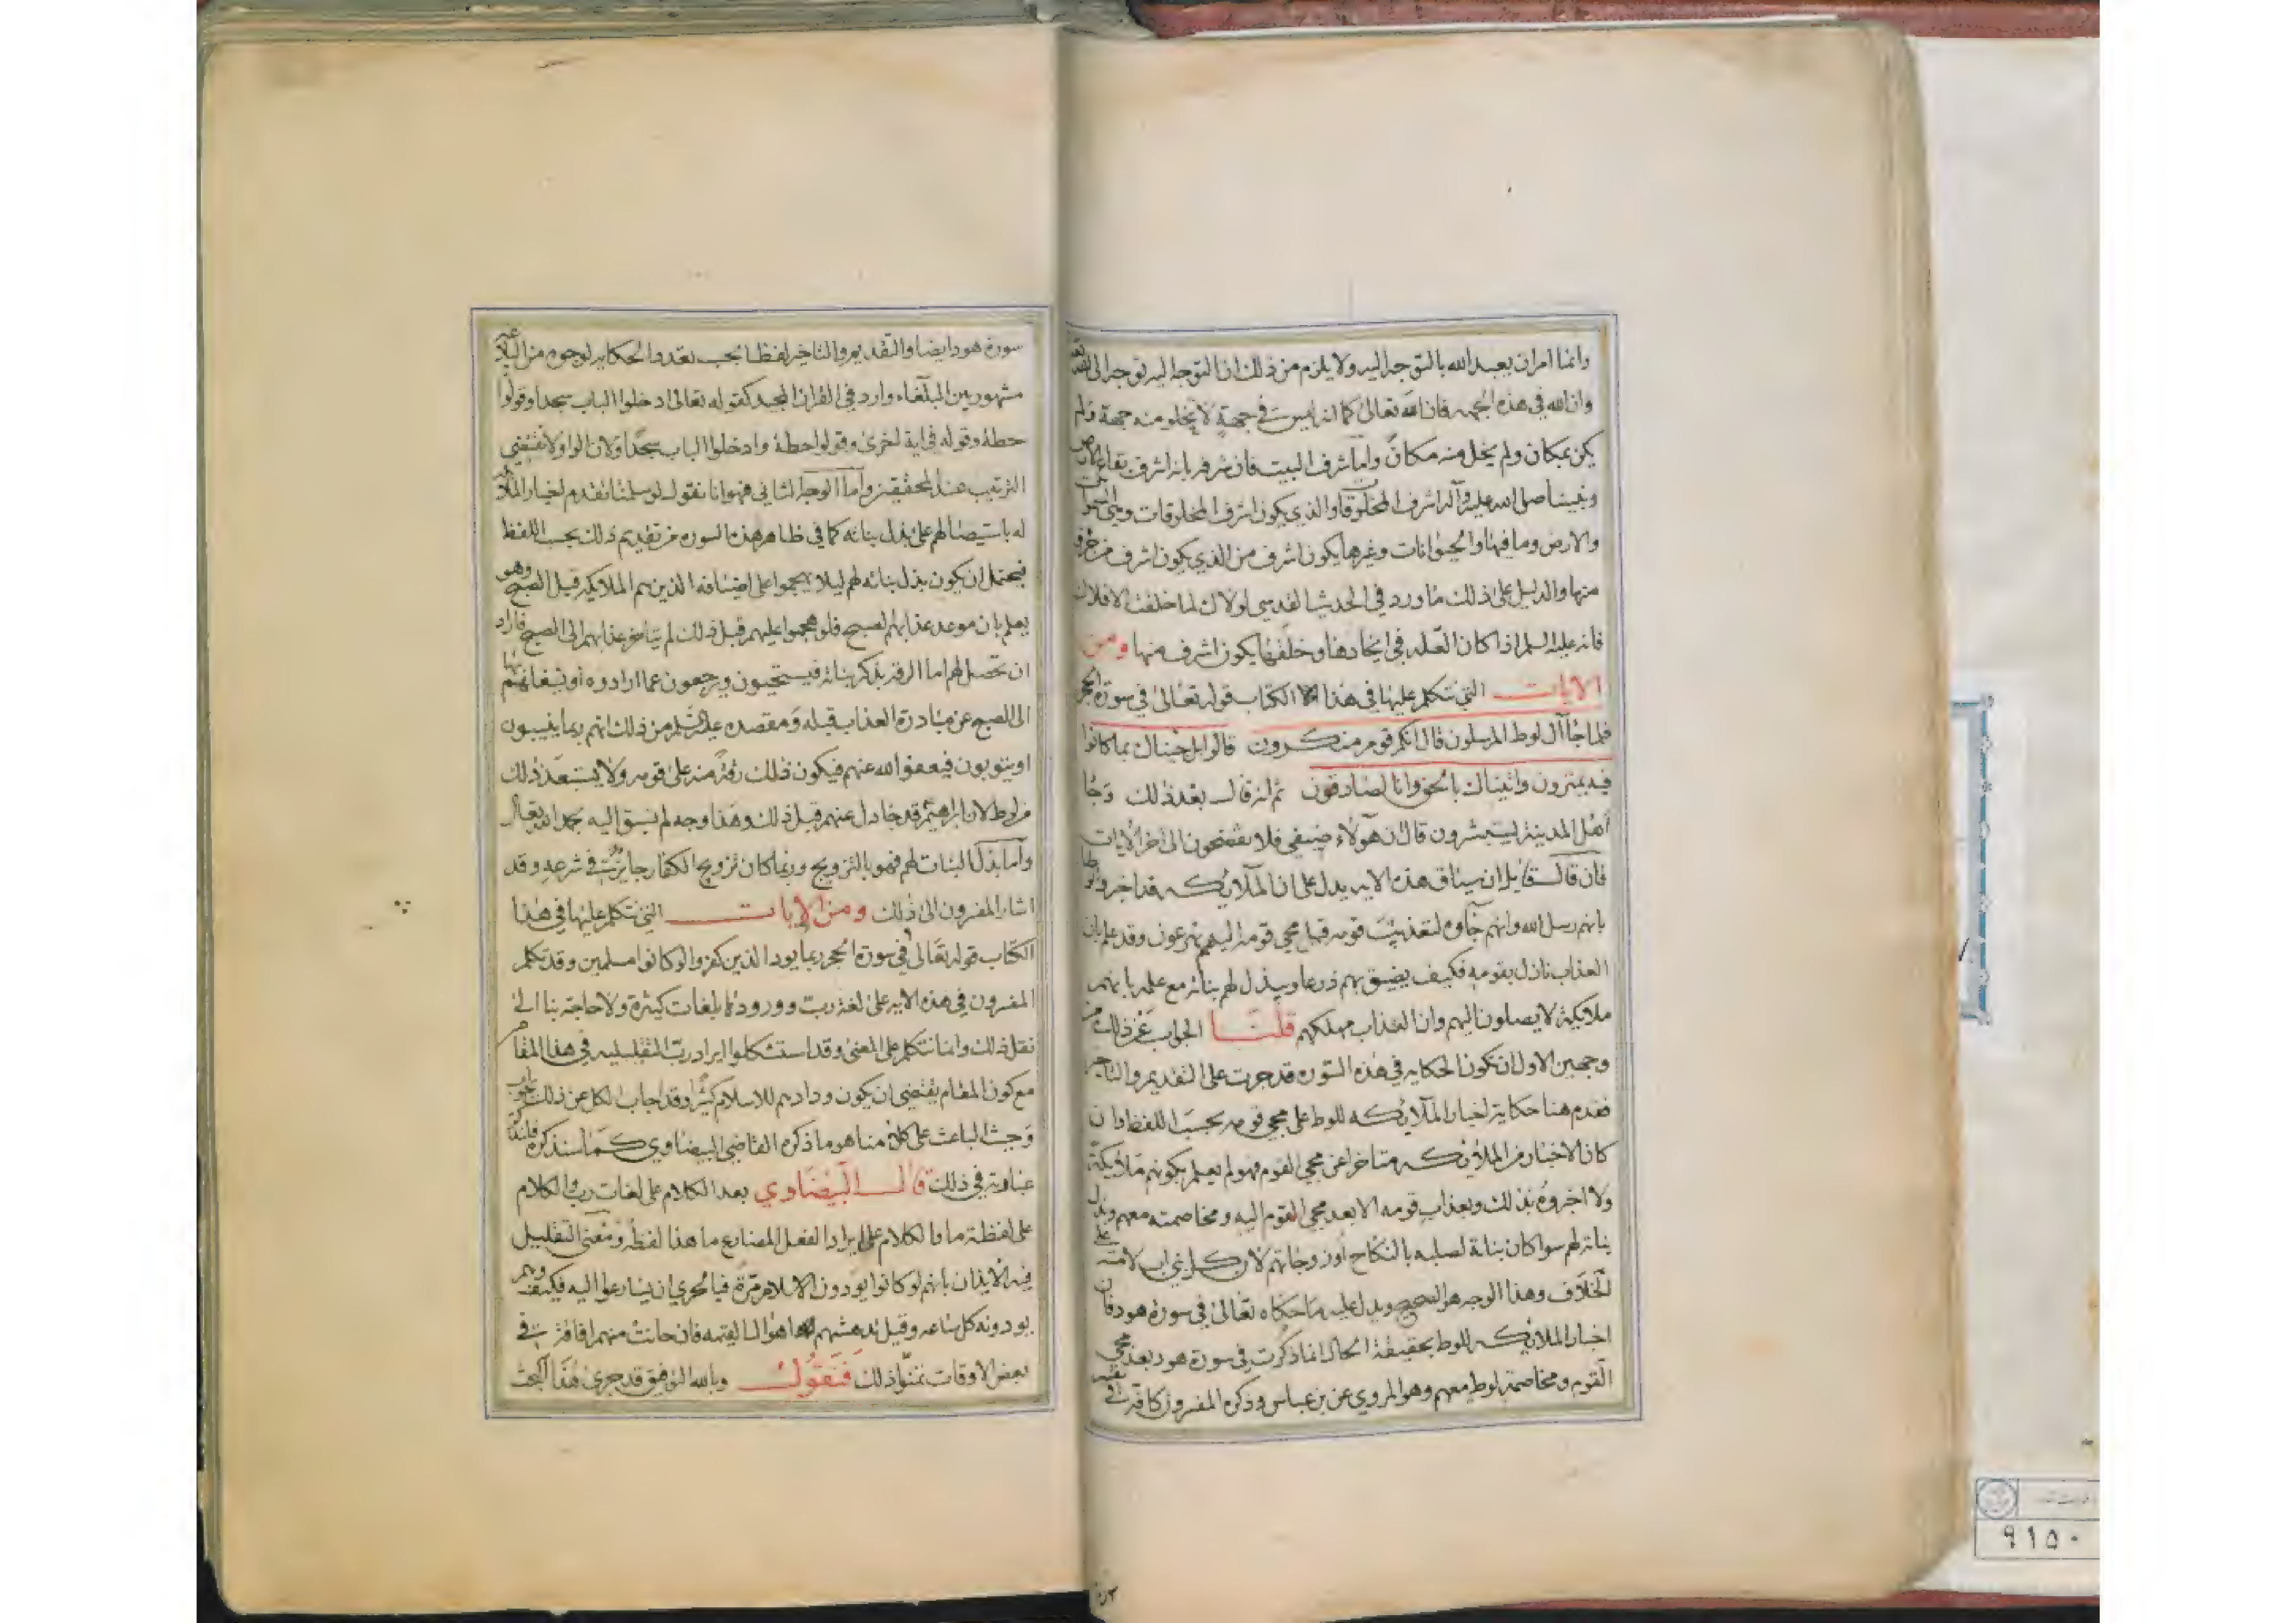 وانما امرنا بعبد الله بالتوجه اليه ولا يلزم من ذلك ان التوجه اليه توجه الى الله
وان الله في هذه الجهه فان الله تعالى كما انه ليس في جهة لا يخلو منه جهة ولم
يكن بمكان ولم يخل منه مكان واما شرف البيت فان شرفه بانه اشرف بقاع الارض
ونبينا صلى الله عليه وآله اشرف المخلوقات والذي يكون اشرف المخلوقات وبنى السموات
والارض وما فيها والحيوانات وغيرها يكون اشرف من الذي يكون اشرف من جزء
منها والدليل على ذلك ما ورد في الحديث القدسي لولاك لما خلقت الافلاك
فانه عليه السلم اذا كان العله في ايجادها وخلقها يكون اشرف منها ومن
الايات التي نتكلم عليها في هذا الكتاب قوله تعالى في سورة الحجر
فلما جاآل لوط المرسلون قال انكم قوم منكرون قالوا بل جئناك بما كانوا
فيه يمترون واتيناك بالحق وانا لصادقون ثم انه قال بعد ذلك وجا
اهل المدينة يستبشرون قال ان هولاء ضيفي فلا تفضحون الى اخر الايات
فان قال قايل ان سياق هذه الايه يدل على ان الملائكه قد اخبروا لوطا
بانهم رسل الله وانهم جآوه لتعذيب قومه قبل مجي قومه اليهم يهرعون وقد علم بان
العذاب نازل بقومه فكيف يضيق بهم ذرعا ويبذل لهم بناته مع علمه بانهم
ملايكة لا يصلون اليهم وان العذاب مهلكهم قلنا الجواب عن ذلك من
وجهين الاول ان تكون الحكايه في هذه السوره قد جرت على التقديم والتاخير
فقدم هنا حكاية اخبار الملائكه للوط على مجي قومه بحسب اللفظ وان
كان الاخبار من الملائكه متاخرا عن مجي القوم فهو لم يعلم بكونهم ملائكة
ولا اخبروه بذلك وبعذاب قومه الا بعد مجي القوم اليه ومخاصمته معهم وبذل
بناته لهم سوا كان بناته لصلبه بالنكاح او زوجاتهم لان كل نبي اب لامته على
الخلاف وهذا الوجه هو الصحيح ويدل عليه ما حكاه تعالى في سورة هود فان
اخبار الملائكه للوط بحقيقة الحال انما ذكرت في سورة هود بعد مجي
القوم ومخاصمة لوط معهم وهو المروي عن بن عباس وذكره المفسرون كافة في تفسير
سورة هود ايضا والتقديم والتاخير لفظا بحسب تعدد الحكايه لوجوه من البلاغة
مشهور بين البلغاء وارد في القران المجيد كقوله تعالى ادخلوا الباب سجدا وقولوا
حطة وقوله في اية اخرى وقولوا حطة وادخلوا الباب سجدا ولان الواو لا تقتضي
الترتيب عند المحققين واما الوجه الثاني فهو انا نقول لو سلمنا تقدم اخبار الملائكة
له باستيصالهم على بذل بناته كما في ظاهر هذه السوره من تقديم ذلك بحسب اللفظ
فيحتمل ان يكون بذل بناته لهم ليلا يهجموا على اضيافه الذين هم الملايكه قبل الصبح وهو
يعلم بان موعد عذابهم الصبح فلو هجموا عليهم قبل ذلك لم يتاخر عذابهم الى الصبح فاراد
ان تحصل لهم اما الرقة بذكر بناته فيستحيون ويرجعون عما ارادوه او شغلهم بها
الى الصبح عن مبادرة العذاب قبله ومقصده عليه السلم من ذلك انهم ربما ينيبون
او يتوبون فيعفو الله عنهم فيكون ذلك رقة منه على قومه ولا يستبعد ذلك
من لوط لان ابراهيم قد جادل عنهم قبل ذلك وهذا وجه لم نسبق اليه بحمد الله تعالى
واما بذل البنات لهم فهو بالتزويج وربما كان تزويج الكفار جايزا في شرعه وقد
اشار المفسرون الى ذلك ومن الايات التي نتكلم عليها في هذا
الكتاب قوله تعالى في سورة الحجر ربما يود الذين كفروا لو كانوا مسلمين وقد تكلم
المفسرون في هذه الايه على لغة رب وورودها بلغات كثيرة ولا حاجة بنا الى
نقل ذلك وانما نتكلم على المعنى وقد استشكلوا ايراد رب التقليليه في هذا المقام
مع كون المقام يقتضي ان يكون ودادهم للاسلام كثيرا وقد اجاب الكل عن ذلك بجواب
وحيث الباعث على كلامنا هو ما ذكره القاضي البيضاوي كما سنذكره فلنذكر
عبارته في ذلك قال البيضاوي بعد الكلام على لغات رب والكلام
على لفظة ما والكلام على ايراد الفعل المضارع ما هذا لفظه ومعنى التقليل
فيه الايذان بانهم لو كانوا يودون الاسلام مرة فبالحري ان يسارعوا اليه فكيف وهم
يودونه كل ساعه وقيل تدهشهم اهوال القيمه فان حانت منهم افاقة في
بعض الاوقات تمنوا ذلك فنقول وبالله التوفيق قد جرى هذا البحث
٩١٥٠